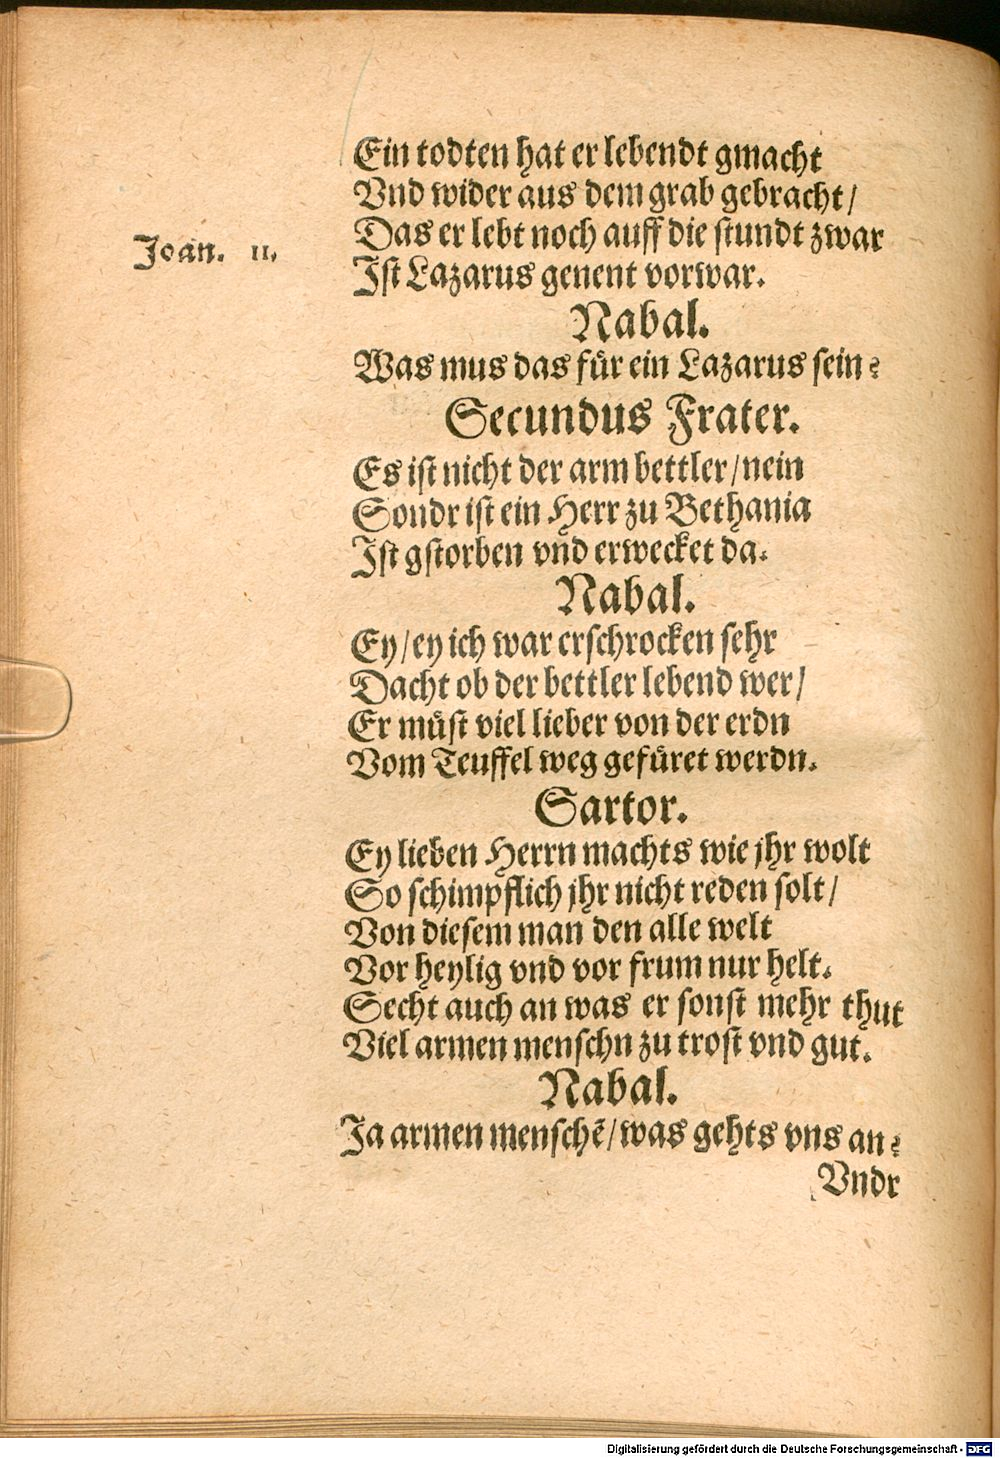 Ein todten hat er lebendt gmacht
Vnd wider aus dem grab gebracht/
Das er lebt noch auff die stundt zwar
Joan. 11.
Ist Lazarus genent vorwar.
Nabal.
Was mus das für ein Lazarus sein?
Secundus Frater.
Es ist nicht der arm bettler/nein
Sondr ist ein Herr zu Bethania
Ist gstorben vnd erwecket da.
Nabal.
Ey/ey ich war erschrocken sehr
Dacht ob der bettler lebend wer/
Er müst viel lieber von der erdn
Vom Teuffel weg gefüret werdn.
Sartor.
Ey lieben Herrn machts wie jhr wolt
So schimpflich jhr nicht reden solt/
Von diesem man den alle welt
Vor heylig vnd vor frum nur helt.
Secht auch an was er sonst mehr thut
Viel armen menschn zu trost vnd gut.
Nabal.
Ja armen menschẽ/was gehts vns an?
Vndr
Digitalisierung gefördert durch die Deutsche Forschungsgemeinschaft - DFG